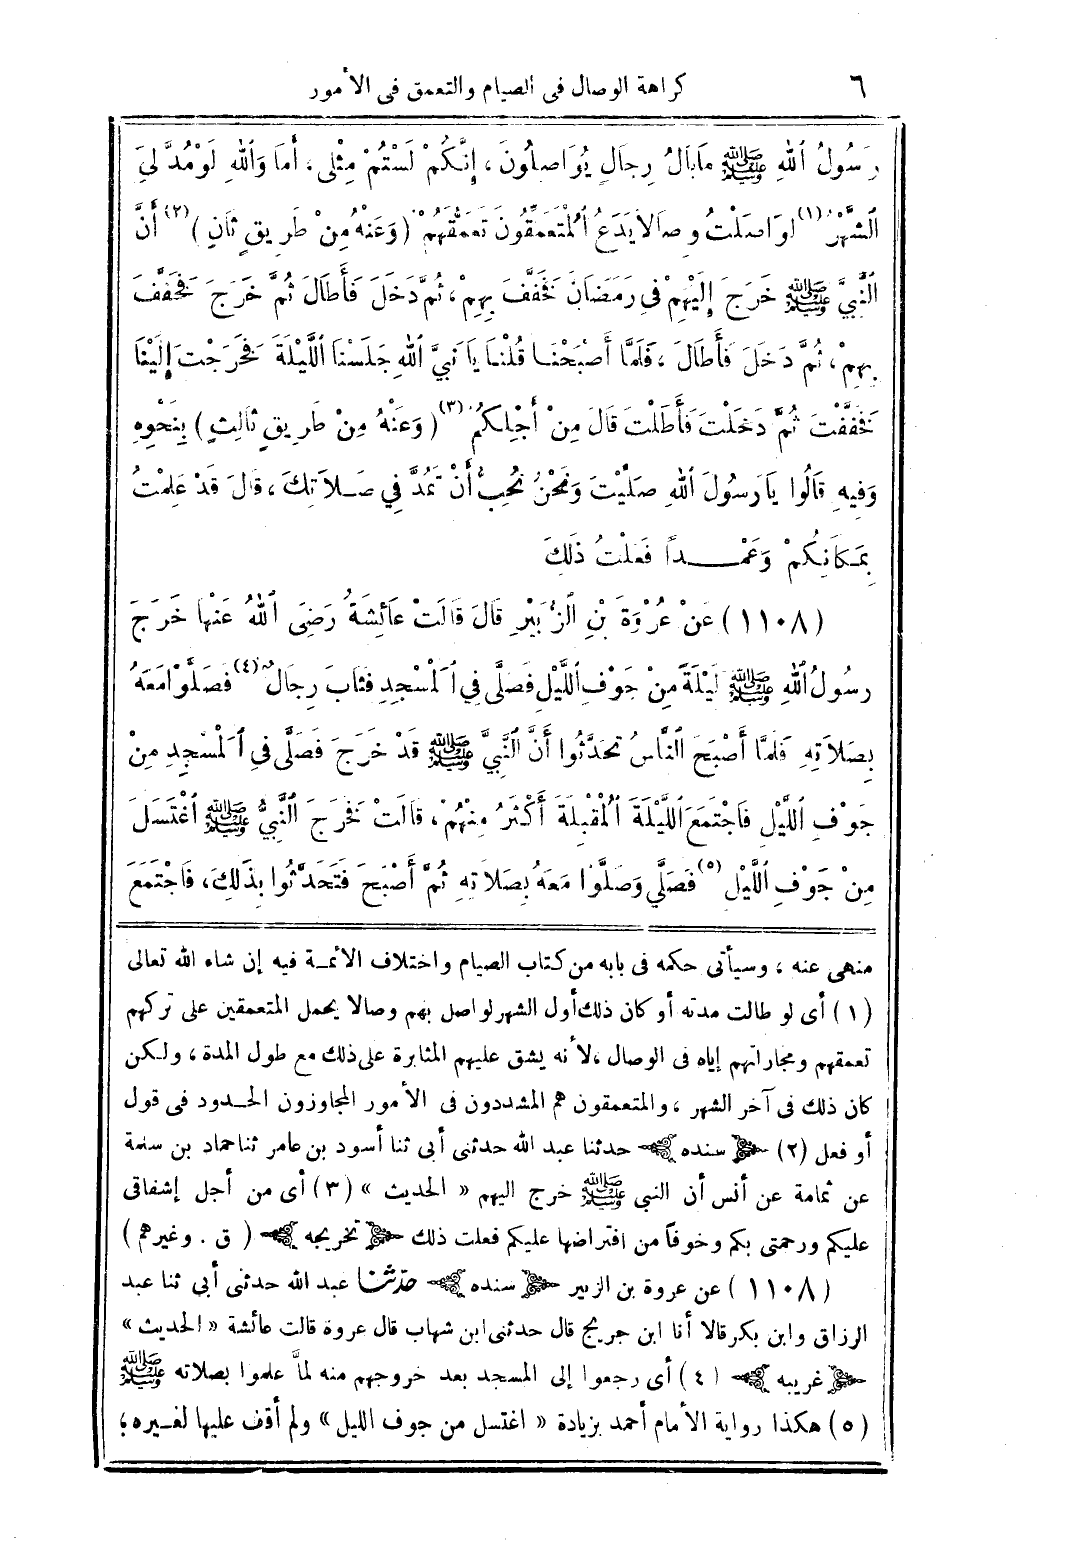 ٦ كراهة الوصال فى الصيام والتعمق فى الأمور
رَسُولُ اللهِ ﷺ مَابَالُ رِجَالٍ يُوَاصِلُونَ، إِنَّكُمْ لَسْتُمْ مِثْلِى، أَمَا وَاللهِ لَوْ مُدَّ لِيَ
الشَّهْرُ (١) لَوَاصَلْتُ وِصَالاً يَدَعُ الْمُتَعَمِّقُونَ تَعَمُّقَهُمْ (وَعَنْهُ مِنْ طَرِيقٍ ثَانٍ) (٢) أَنَّ
النَّبِيَّ ﷺ خَرَجَ إِلَيْهِمْ فِى رَمَضَانَ فَخَفَّفَ بِهِمْ، ثُمَّ دَخَلَ فَأَطَالَ ثُمَّ خَرَجَ فَخَفَّفَ
بِهِمْ، ثُمَّ دَخَلَ فَأَطَالَ، فَلَمَّا أَصْبَحْنَا قُلْنَا يَا نَبِيَّ اللهِ جَلَسْنَا اللَّيْلَةَ فَخَرَجْتَ إِلَيْنَا
فَخَفَّفْتَ ثُمَّ دَخَلْتَ فَأَطَلْتَ قَالَ مِنْ أَجْلِكُمْ (٣) (وَعَنْهُ مِنْ طَرِيقٍ ثَالِثٍ) بِنَحْوِهِ
وَفِيهِ قَالُوا يَا رَسُولَ اللهِ صَلَّيْتَ وَنَحْنُ نُحِبُّ أَنْ تَمُدَّ فِي صَلَاتِكَ، قَالَ قَدْ عَلِمْتُ
بِمَكَانِكُمْ وَعَمْدًا فَعَلْتُ ذَلِكَ
(١١٠٨) عَنْ عُرْوَةَ بْنِ الزُّبَيْرِ قَالَ قَالَتْ عَائِشَةُ رَضِىَ اللهُ عَنْهَا خَرَجَ
رَسُولُ اللهِ ﷺ لَيْلَةً مِنْ جَوْفِ اللَّيْلِ فَصَلَّى فِي الْمَسْجِدِ فَثَابَ رِجَالٌ (٤) فَصَلَّوْا مَعَهُ
بِصَلَاتِهِ فَلَمَّا أَصْبَحَ النَّاسُ تَحَدَّثُوا أَنَّ النَّبِيَّ ﷺ قَدْ خَرَجَ فَصَلَّى فِى الْمَسْجِدِ مِنْ
جَوْفِ اللَّيْلِ فَاجْتَمَعَ اللَّيْلَةَ الْمُقْبِلَةَ أَكْثَرُ مِنْهُمْ، قَالَتْ فَخَرَجَ النَّبِيُّ ﷺ اغْتَسَلَ
مِنْ جَوْفِ اللَّيْلِ (٥) فَصَلَّى وَصَلَّوْا مَعَهُ بِصَلَاتِهِ ثُمَّ أَصْبَحَ فَتَحَدَّثُوا بِذَلِكَ، فَاجْتَمَعَ
منهى عنه، وسيأتى حكمه فى بابه من كتاب الصيام واختلاف الأئمة فيه إن شاء الله تعالى
(١) أى لو طالت مدته أو كان ذلك أول الشهر لواصل بهم وصالا يحمل المتعمقين على تركهم
تعمقهم ومجاراتهم إياه فى الوصال، لأنه يشق عليهم المثابرة على ذلك مع طول المدة، ولكن
كان ذلك فى آخر الشهر، والمتعمقون هم المشددون فى الأمور المجاوزون الحدود فى قول
أو فعل (٢) سنده حدثنا عبد الله حدثنى أبى ثنا أسود بن عامر ثنا حماد بن سلمة
عن ثمامة عن أنس أن النبى ﷺ خرج اليهم « الحديث » (٣) أى من أجل إشفاقى
عليكم ورحمتى بكم وخوفاً من افتراضها عليكم فعلت ذلك تخريجه (ق . وغيرهم)
(١١٠٨) عن عروة بن الزبير سنده حدثنا عبد الله حدثنى أبى ثنا عبد
الرزاق وابن بكر قالا أنا ابن جريج قال حدثنى ابن شهاب قال عروة قالت عائشة « الحديث »
غريبه (٤) أى رجعوا إلى المسجد بعد خروجهم منه لمَّا علموا بصلاته ﷺ
(٥) هكذا رواية الأمام أحمد بزيادة « اغتسل من جوف الليل » ولم أقف عليها لغيره؛